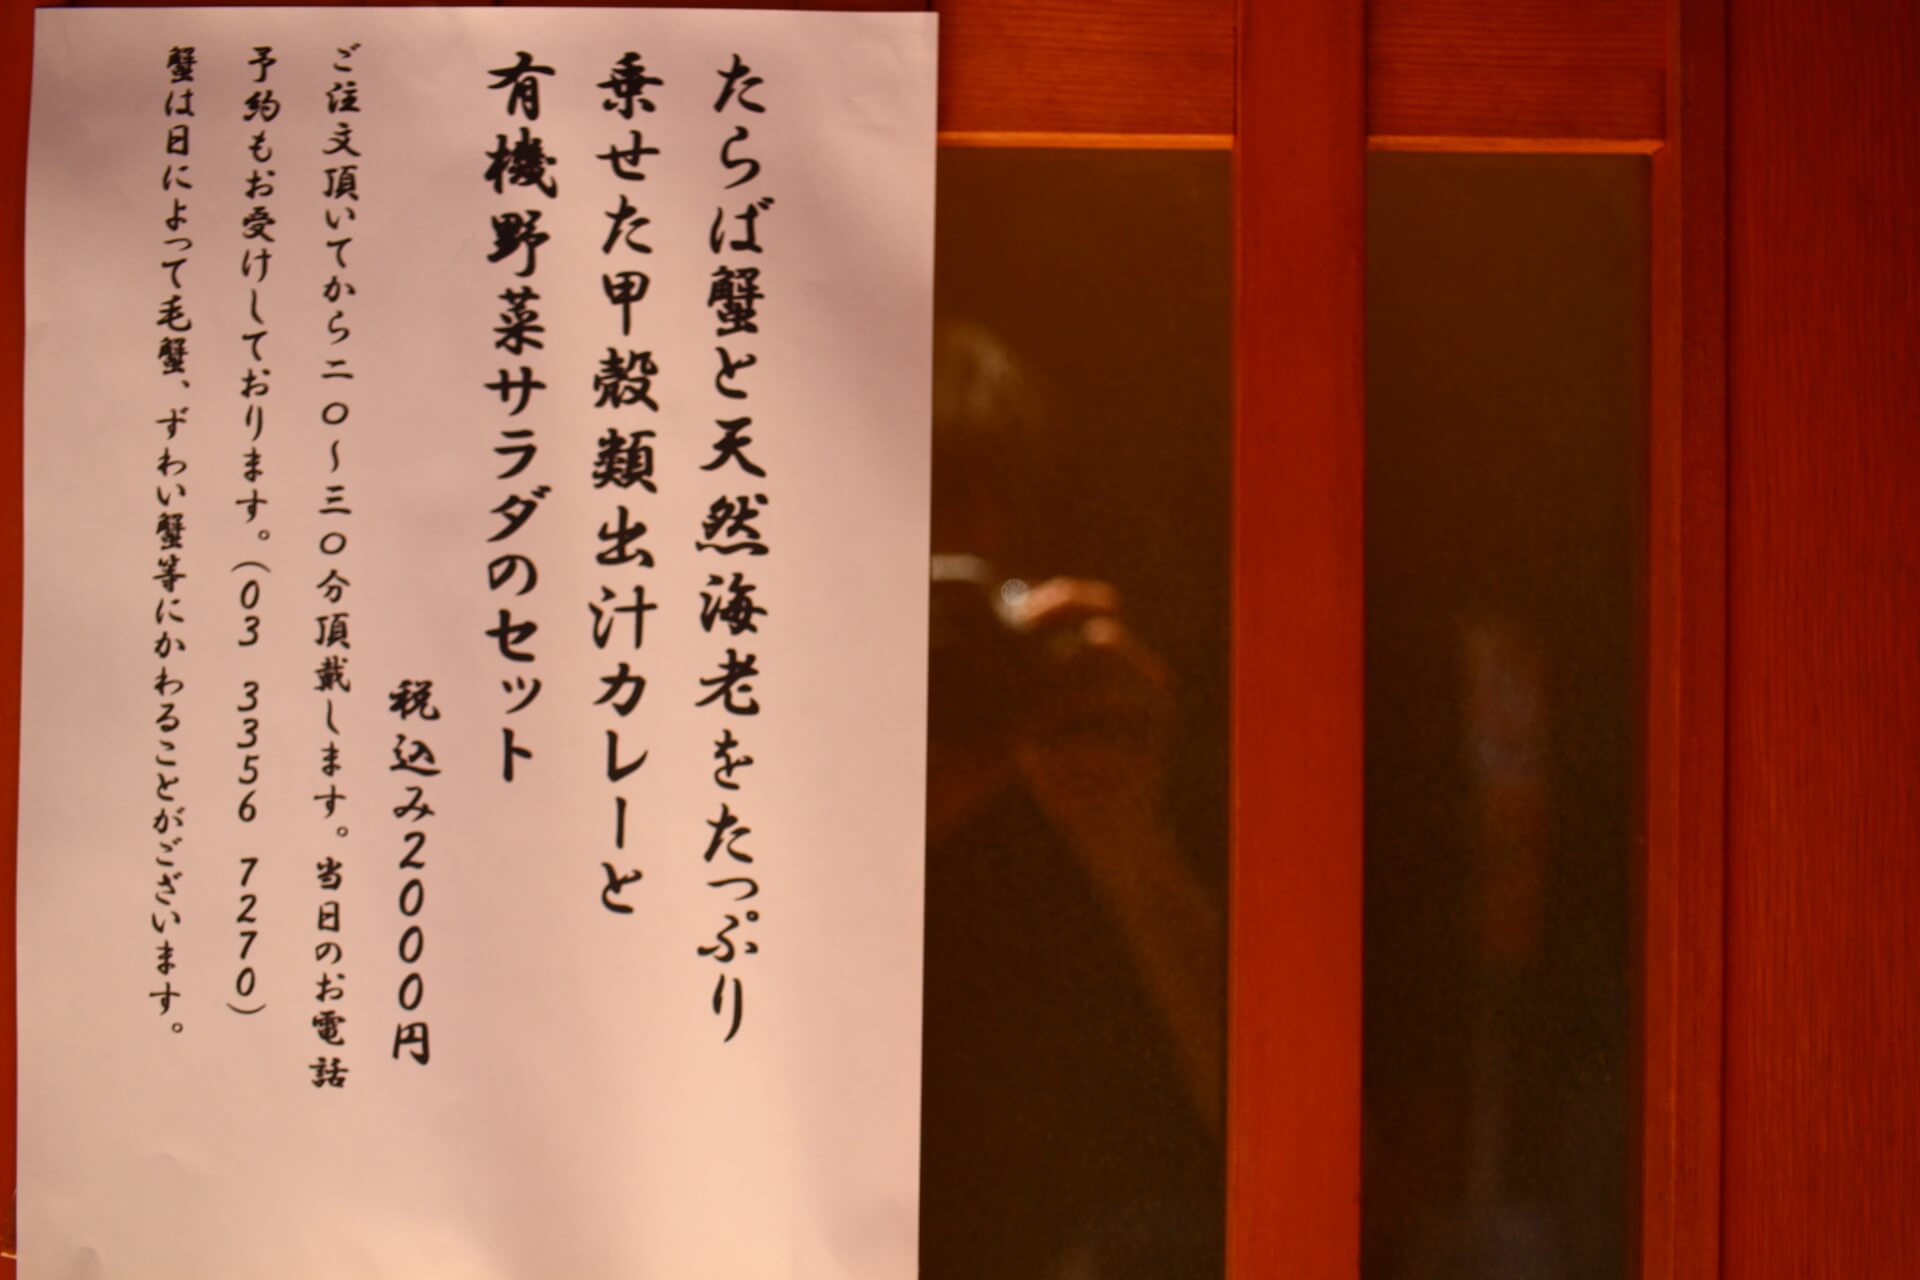 たらば蟹と天然海老をたっぷり
乗せた甲殻類出汁カレーと
有機野菜サラダのセット
税込み2000円
ご注文頂いてから二〇～三〇分頂戴します。当日のお電話
予約もお受けしております。(03 3356 7270)
蟹は日によって毛蟹、ずわい蟹等にかわることがございます。